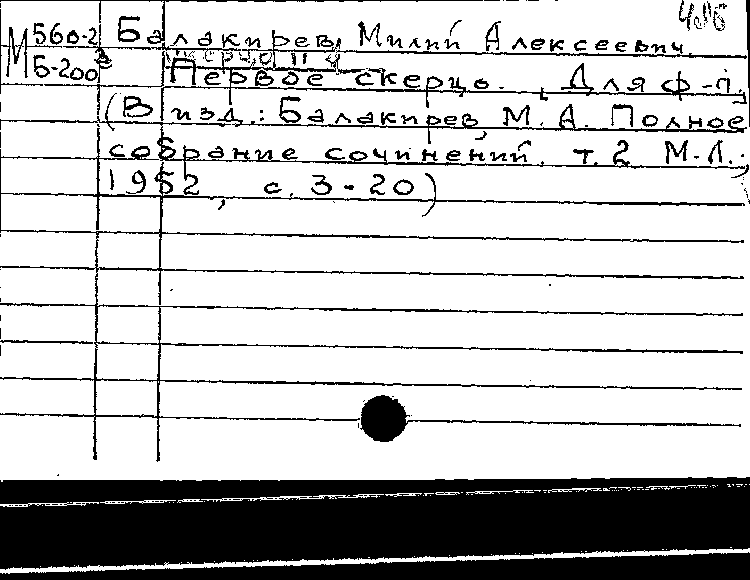 М 560-2
Б-200 3
Балакирев, Милий Алексеевич.
Первое скерцо. [Для ф-п.]
(В изд.: Балакирев, М. А. Полное
собрание сочинений. т. 2 М.-Л.,
1952, с. 3-20)